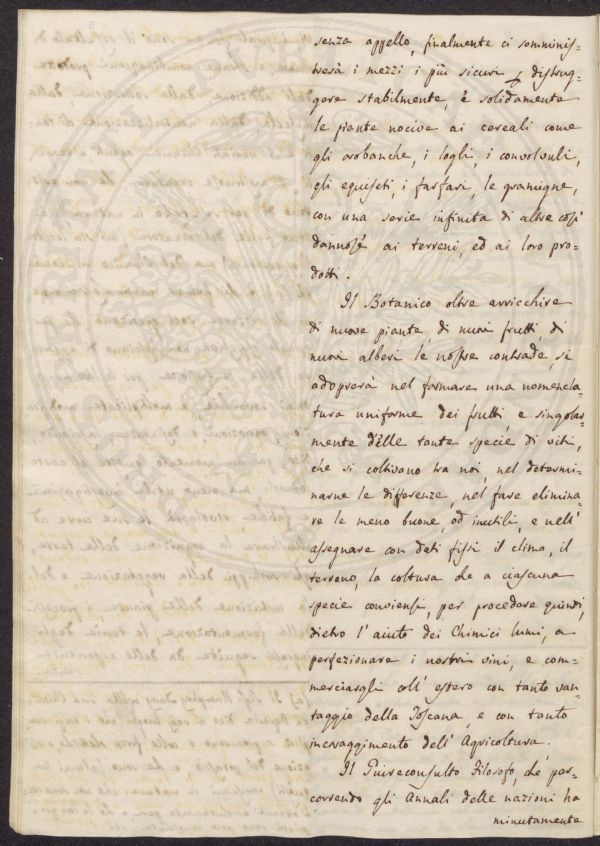 senza appello, finalmente ci somminis-
trerà i mezzi i più sicuri p distrug-
gere stabilmente, e solidamente
le piante nocive ai cereali come
gli orobanche, i logli, i convolvuli,
gli equiseti, i farfari, le gramigne,
con una serie infinita di altre così
dannose ai terreni, ed ai loro pro-
dotti.
Il Botanico oltre arricchire
di nuove piante, di nuovi frutti, di
nuovi alberi le nostre contrade, si
adoprerà nel formare una nomencla-
tura uniforme dei frutti, e singolar-
mente delle tante specie di viti,
che si coltivano tra noi, nel determi-
narne le differenze, nel fare elimina-
re le meno buone, od inutili, e nell'
assegnare con dati fissi il clima, il
terreno, la coltura che a ciascuna
specie conviensi, per procedere quindi,
dietro l'aiuto dei Chimici lumi, a
perfezionare i nostri vini, e com-
merciargli coll'estero con tanto van-
taggio della Toscana, e con tanto
incoraggimento dell'Agricoltura.
Il Giureconsulto Filosofo, che per-
correndo gli Annali delle nazioni ha
minutamente